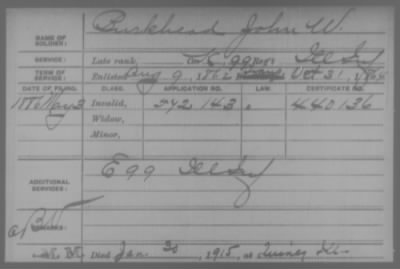 NAME OF SOLDIER: Burkhead John W.
SERVICE: Late rank, Co. E, 99 Reg't Ill Inf
TERM OF SERVICE: Enlisted Aug 9, 1862 Oct 31, 1864
DATE OF FILING. CLASS. APPLICATION NO. LAW. CERTIFICATE NO.
1886 May 3 Invalid, 572 143 440136
Widow,
Minor,
ADDITIONAL SERVICES: E 99 Ill Inf
REMARKS:
Died Jan. 30, 1915, at Quincy Ill.